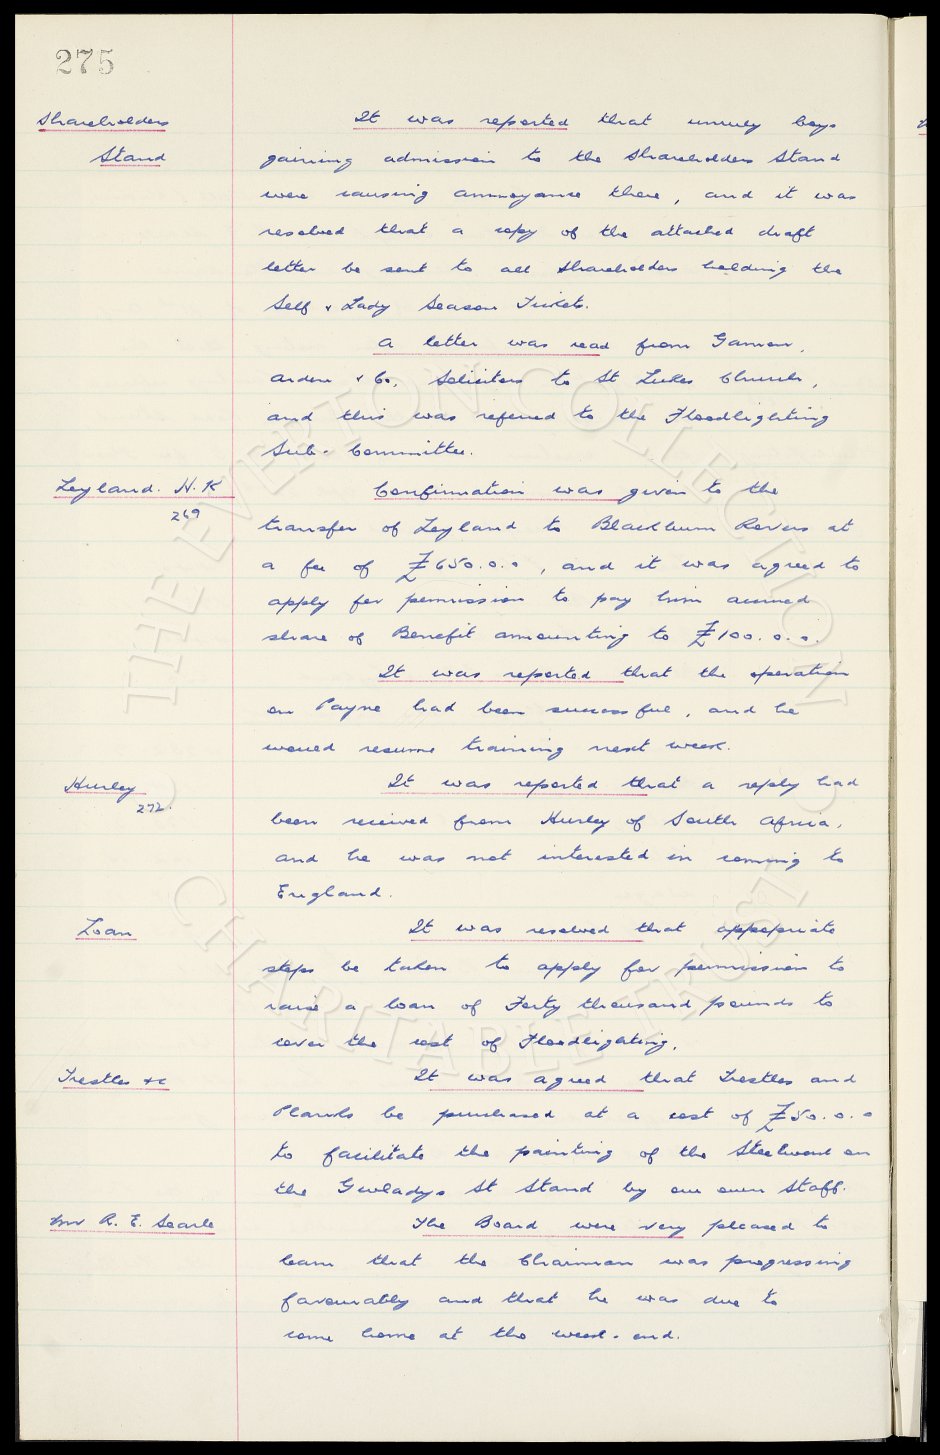 275
Shareholders
Stand
It was reported that unruly boys
gaining admission to the Shareholders Stand
were causing annoyance there, and it was
resolved that a copy of the attached draft
letter be sent to all Shareholders holding the
Self & Lady Season Tickets.
A letter was read from Gamon,
Arden & Co, Solicitors to St Lukes Church,
and this was referred to the Floodlighting
Sub-Committee.
Leyland. H. K
269
Confirmation was given to the
transfer of Leyland to Blackburn Rovers at
a fee of £650.0.0, and it was agreed to
apply for permission to pay him accrued
share of Benefit amounting to £100.0.0.
It was reported that the operation
on Payne had been successful, and he
would resume training next week.
Hurley
272.
It was reported that a reply had
been received from Hurley of South Africa,
and he was not interested in coming to
England.
Loan
It was resolved that appropriate
steps be taken to apply for permission to
raise a loan of Forty thousand pounds to
cover the cost of Floodlighting.
Trestles &c
It was agreed that Trestles and
Planks be purchased at a cost of £50.0.0
to facilitate the painting of the Steelwork on
the Gwladys St Stand by our own Staff.
Mr R. E. Searle
The Board were very pleased to
learn that the Chairman was progressing
favourably and that he was due to
come home at the week-end.
© THE EVERTON COLLECTION
CHARITABLE TRUST